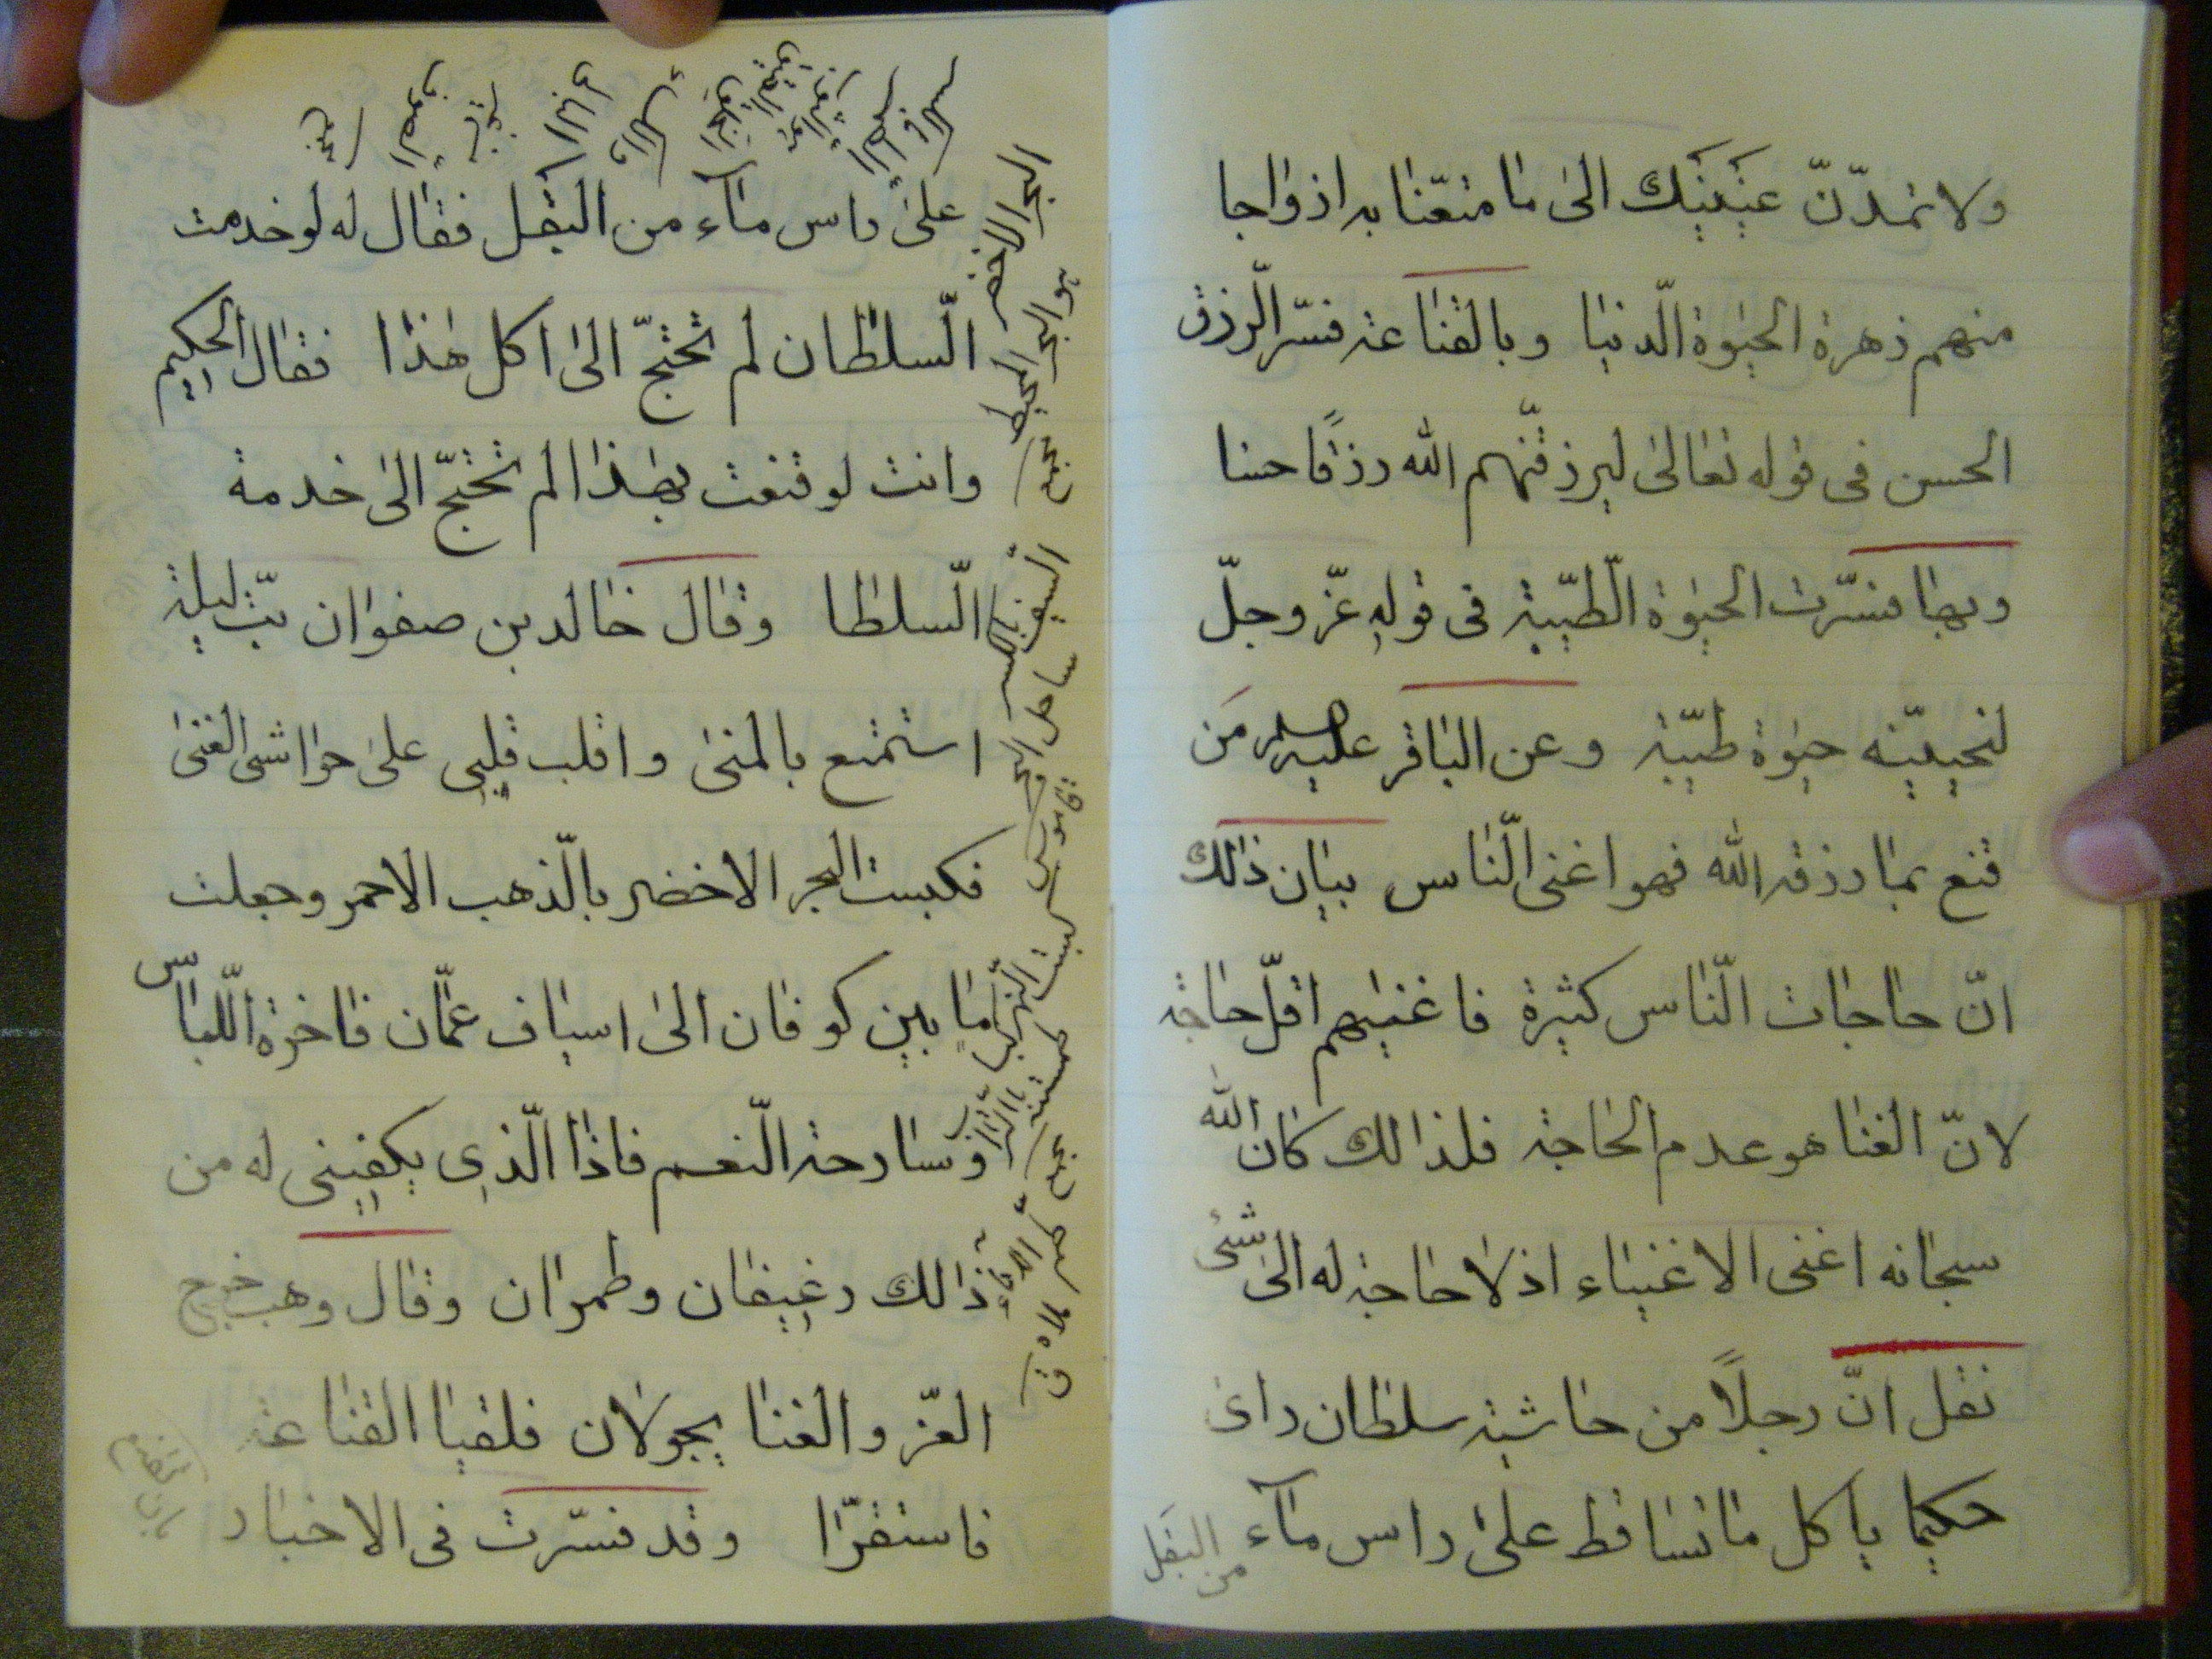 ولا تمدّنّ عينيك الى ما متعّنا به ازواجا
منهم زهرة الحيوة الّدنيا وبالقناعة فسّر الّرزق
الحسن فى قوله تعالى ليرزقنّهم الله رزقًا حسنا
وبها فسّرت الحيوة الّطيّبة فى قوله عزّ وجلّ
لنحيينّه حيوة طيّبة وعن الباقر عليه السلم من
قنع بما رزقه الله فهو اغنى الّناس بيان ذالك
انّ حاجات الّناس كثيرة فاغنيهم اقلّ حاجة
لانّ الغنا هو عدم الحاجة فلذالك كان الله
سبحانه اغنى الاغنياء اذ لا حاجة له الى شىء
نقل انّ رجلًا من حاشية سلطان راى
حكيما ياكل ما تساقط على راس مآء
من البقل
على راس مآء من البقل فقال له لو خدمت
الّسلطان لم تحتجّ الى اكل هذا فقال الحكيم
وانت لو قنعت بهذا لم تحتجّ الى خدمة
الّسلطا وقال خالد بن صفوان بتّ ليلة
استمتع بالمنى واقلب قلبى على حواشى الغنى
فكبست البحر الاخضر بالّذهب الاحمر وجعلت
ما بين كوفان الى اسياف عمّان فاخرة الّلباس
وسارحة الّنعم فاذا الّذى يكفينى له من
ذالك رغيفان وطمران وقال وهب خرج
العزّ والغنا يجولان فلقيا القناعة
فاستقرّا وقد فسّرت فى الاخبار
البحر الاخضر هو البحر المحيط
السيف بالكسر ساحل البحر قاموس
كبست النهر بالتراب طممته